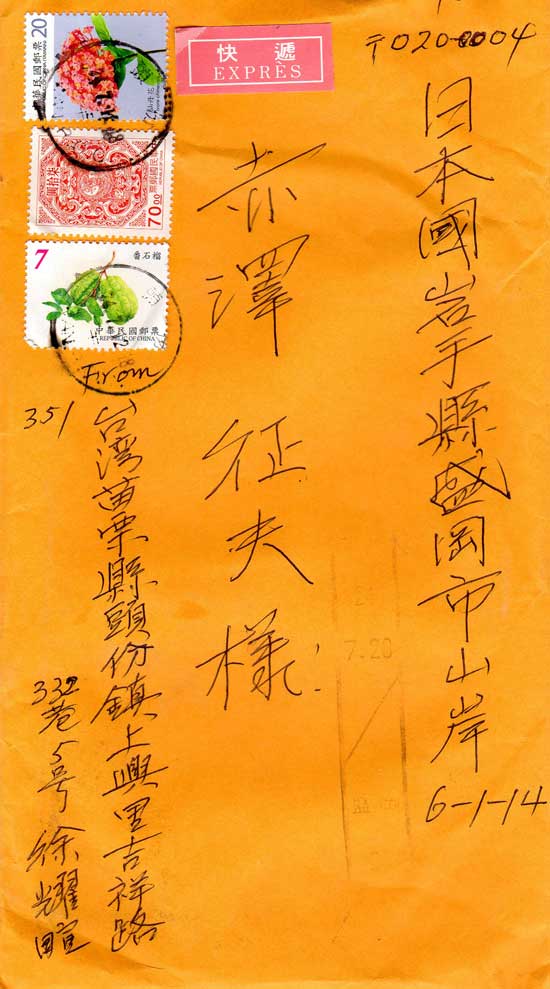 〒020-0004
日本國岩手縣盛岡市山岸
6-1-14
赤澤 征夫 様
快遞
EXPRÈS
20
中華民國郵票
REPUBLIC OF CHINA (TAIWAN)
70.00
中華民國郵票
REPUBLIC OF CHINA
圓拾柒
7
番石榴
中華民國郵票
REPUBLIC OF CHINA
From
351
台湾苗栗縣頭份鎮上興里吉祥路
332巷5号 徐耀
7.20